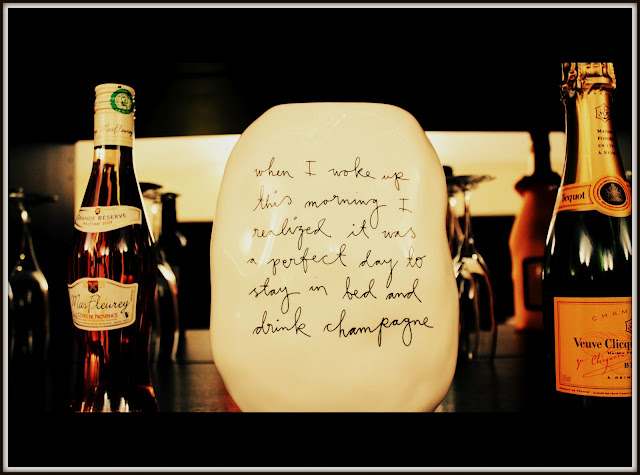 when I woke up
this morning I
realized it was
a perfect day to
stay in bed and
drink champagne
GRANDE RÉSERVE
MasFleurey
CÔTES DE PROVENCE
MAISON
Cliquot
CHAM
Veuve Clicq